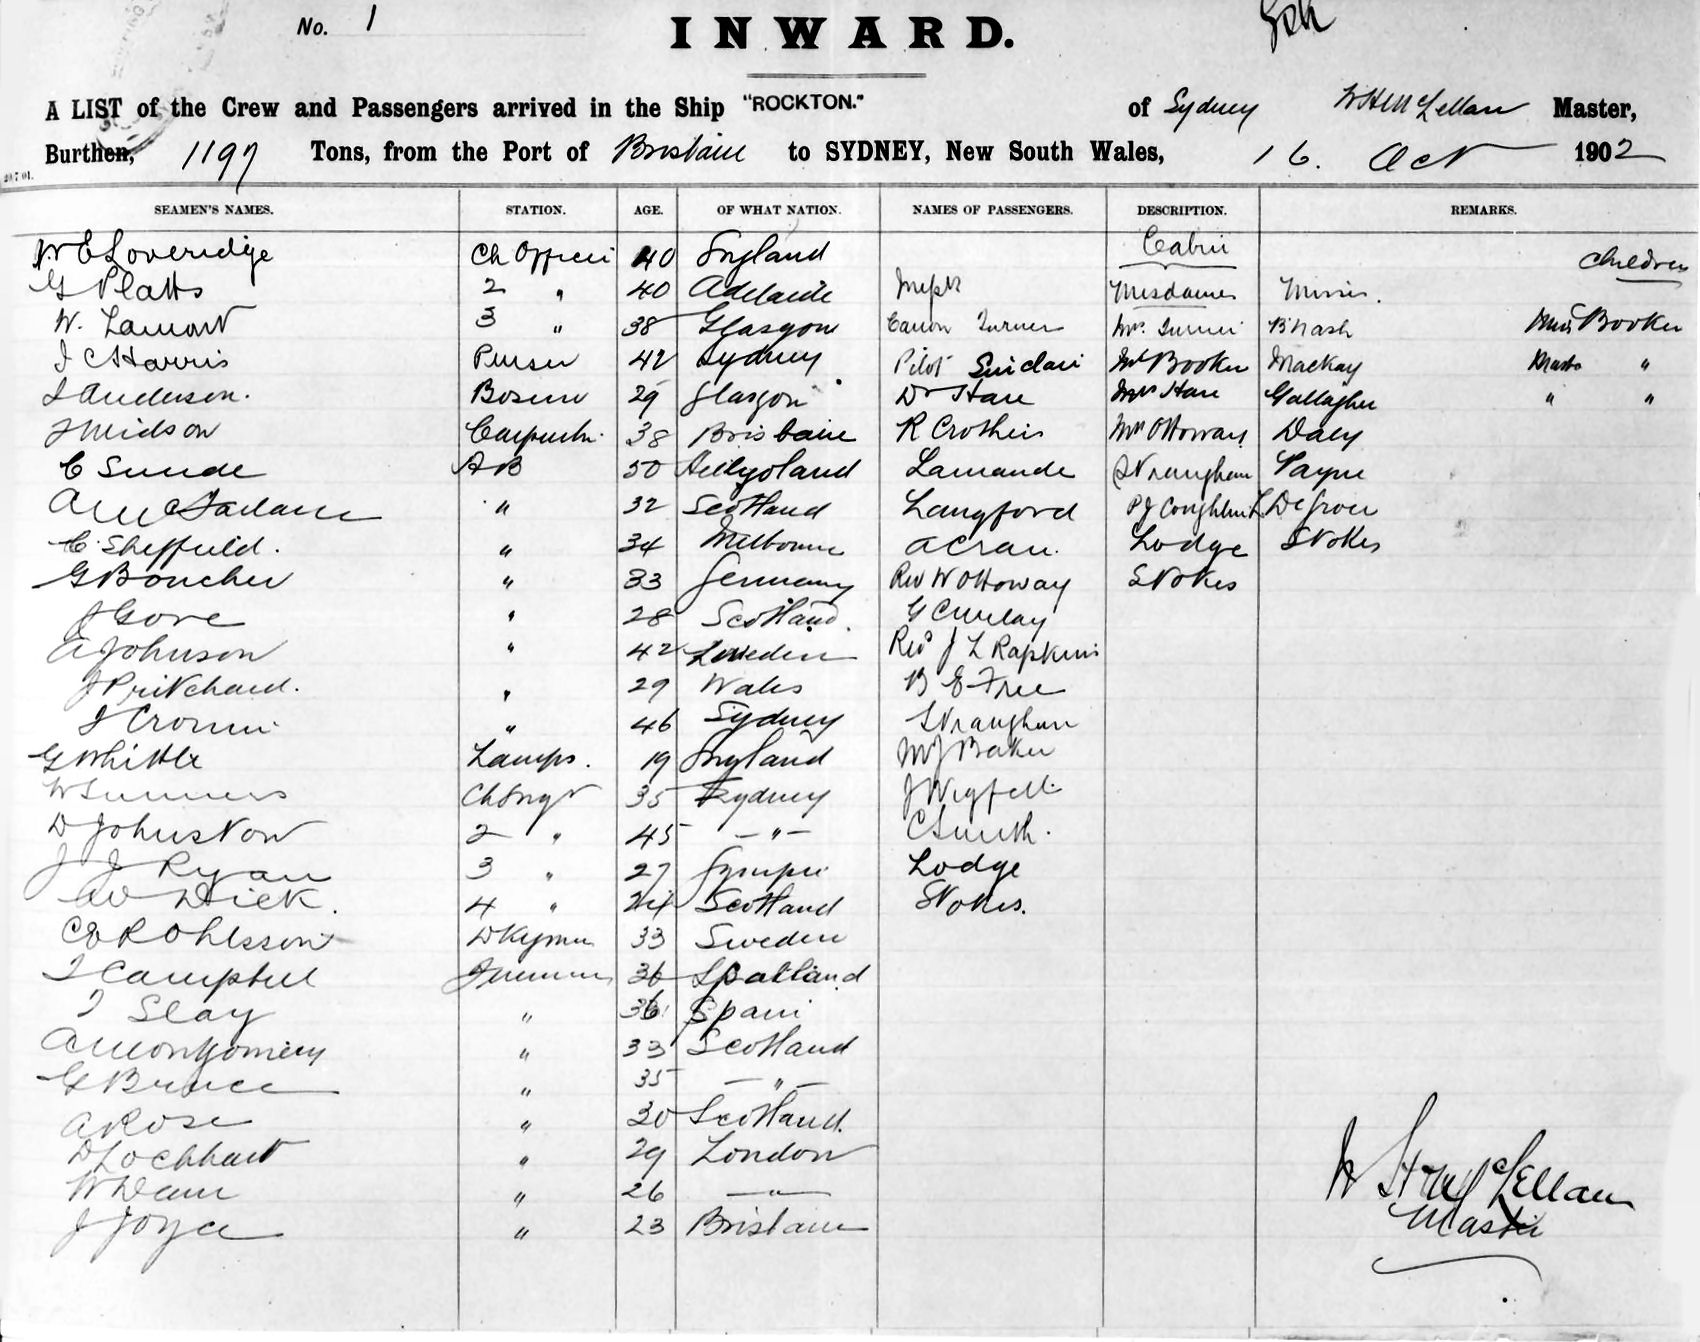 No. 1
INWARD.
A LIST of the Crew and Passengers arrived in the Ship "ROCKTON." of Sydney W H McLellan Master,
Burthen, 1197 Tons, from the Port of Brisbane to SYDNEY, New South Wales, 16. Oct 1902
SEAMEN'S NAMES. STATION. AGE. OF WHAT NATION. NAMES OF PASSENGERS. DESCRIPTION. REMARKS.
W E Loveridge Ch Officer 40 England Cabin Children
G Platts 2 " 40 Adelaide Messrs Mesdames Misses.
W. Lamont 3 " 38 Glasgow Canon Turner Mrs. Turner Brash Miss Booker
J C Harris Purser 42 Sydney Pilot Sinclair Mrs Booker Mackay Mastr "
J Anderson. Bosun 29 Glasgow Dr Hare Mrs Hare Gallagher " "
J Midson Carpenter. 38 Brisbane R Crothers Mrs Ottoway Daly
C Sunde AB 50 Heligoland Lamande Straughan Payne
A McFarlane " 32 Scotland Langford P J Coughlin
C. Sheffield. " 34 Melbourne A Cran. Lodge Stokes
G Boucher " 33 Germany Rev W Ottoway Stokes
J Gore " 28 Scotland. G Curlay
A Johnson " 42 Sweden Rev J L Rapkins
J Pritchard. " 29 Wales B E Free
J Cronin " 46 Sydney Straughan
G Whittle Lamps. 19 England M J Baker
W Summers Ch Engr 35 Sydney J Wigfell
D Johnston 2 " 45 " C Smith.
J J Ryan 3 " 27 Gympie Lodge
A W Dick. 4 " 24 Scotland Stokes.
C E R Ohlsson Dkyman 33 Sweden
J Campbell Firemen 36 Scotland
J Slay " 36 Spain
A Montgomery " 33 Scotland
G Bruce " 35 "
A Rose " 30 Scotland.
D Lockhart " 29 London
W Dam " 26 "
J Joyce " 23 Brisbane
W H McLellan
Master